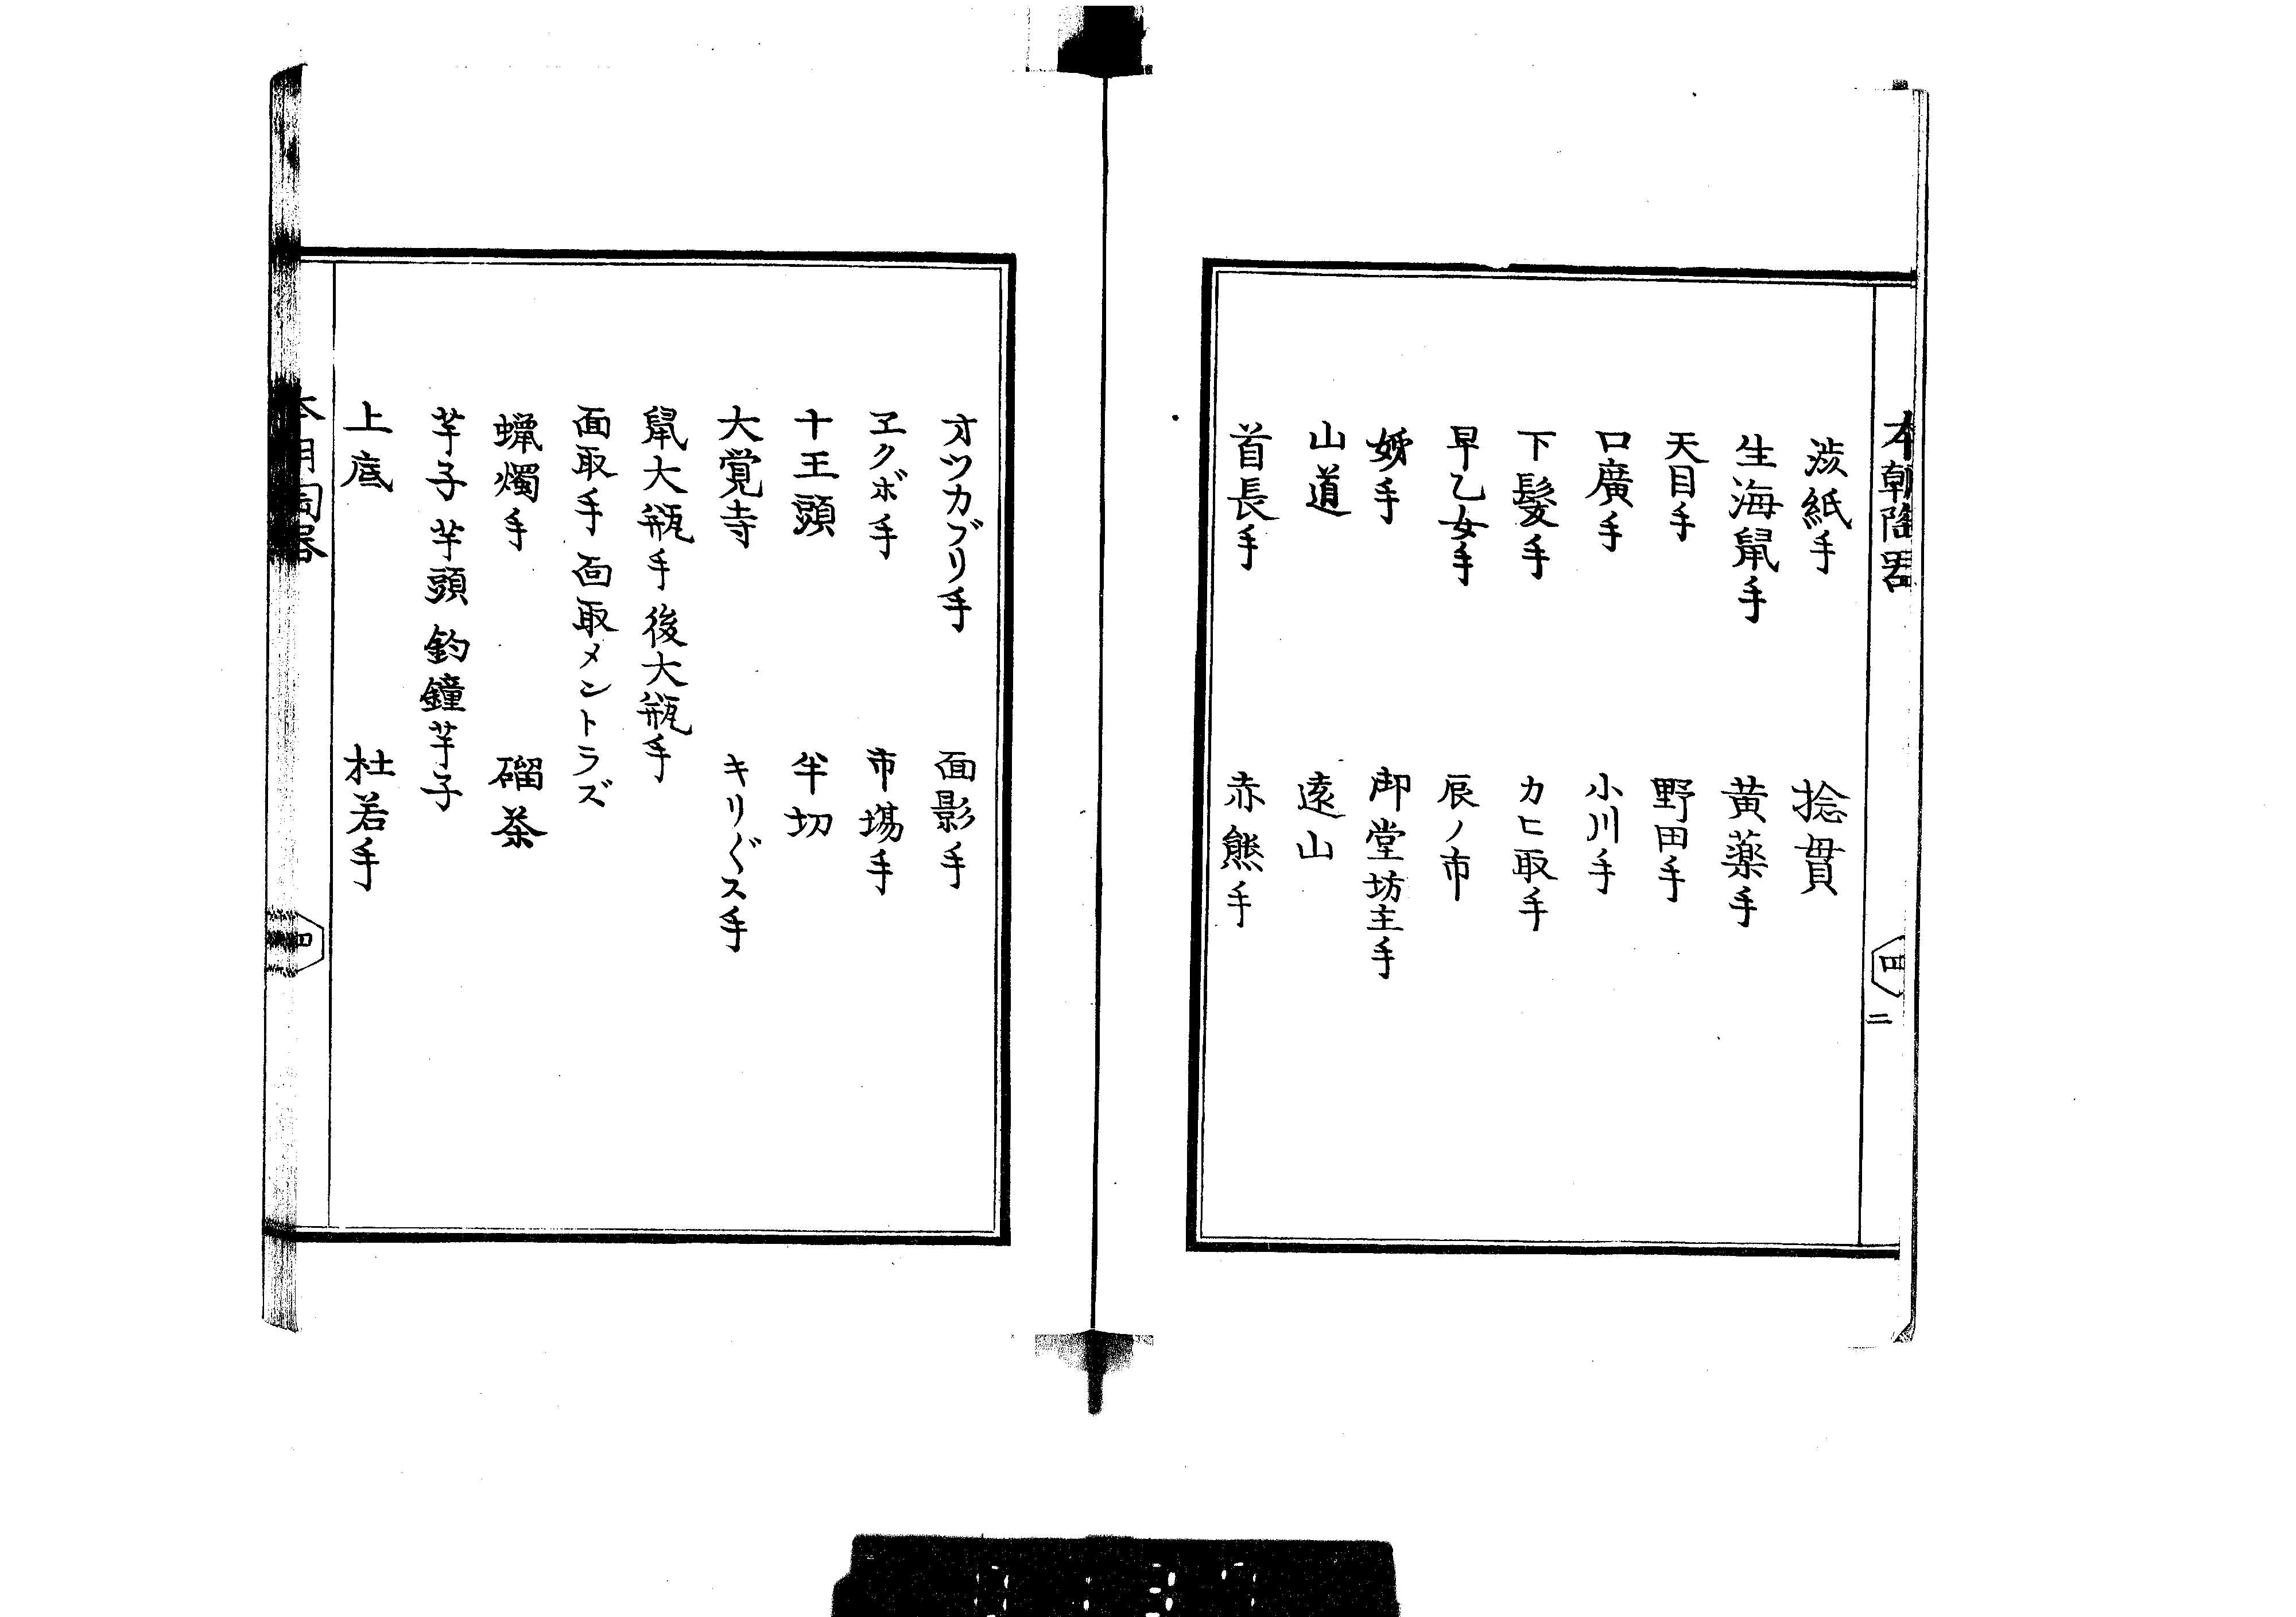 本朝陶器
四
二
渋紙手 捻貫
生海鼠手 黄薬手
天目手 野田手
口廣手 小川手
下髪手 カヒ取手
早乙女手 辰ノ市
姉手 御堂坊主手
山道 遠山
首長手 赤熊手
オツカブリ手 面影手
ヱクボ手 市場手
十王頭 半切
大覚寺 キリ〴〵ス手
鼠大瓶手 後大瓶手
面取手 面取メントラズ
蝋燭手 磂茶
芋子 芋頭 釣鐘芋子
上底 杜若手
四